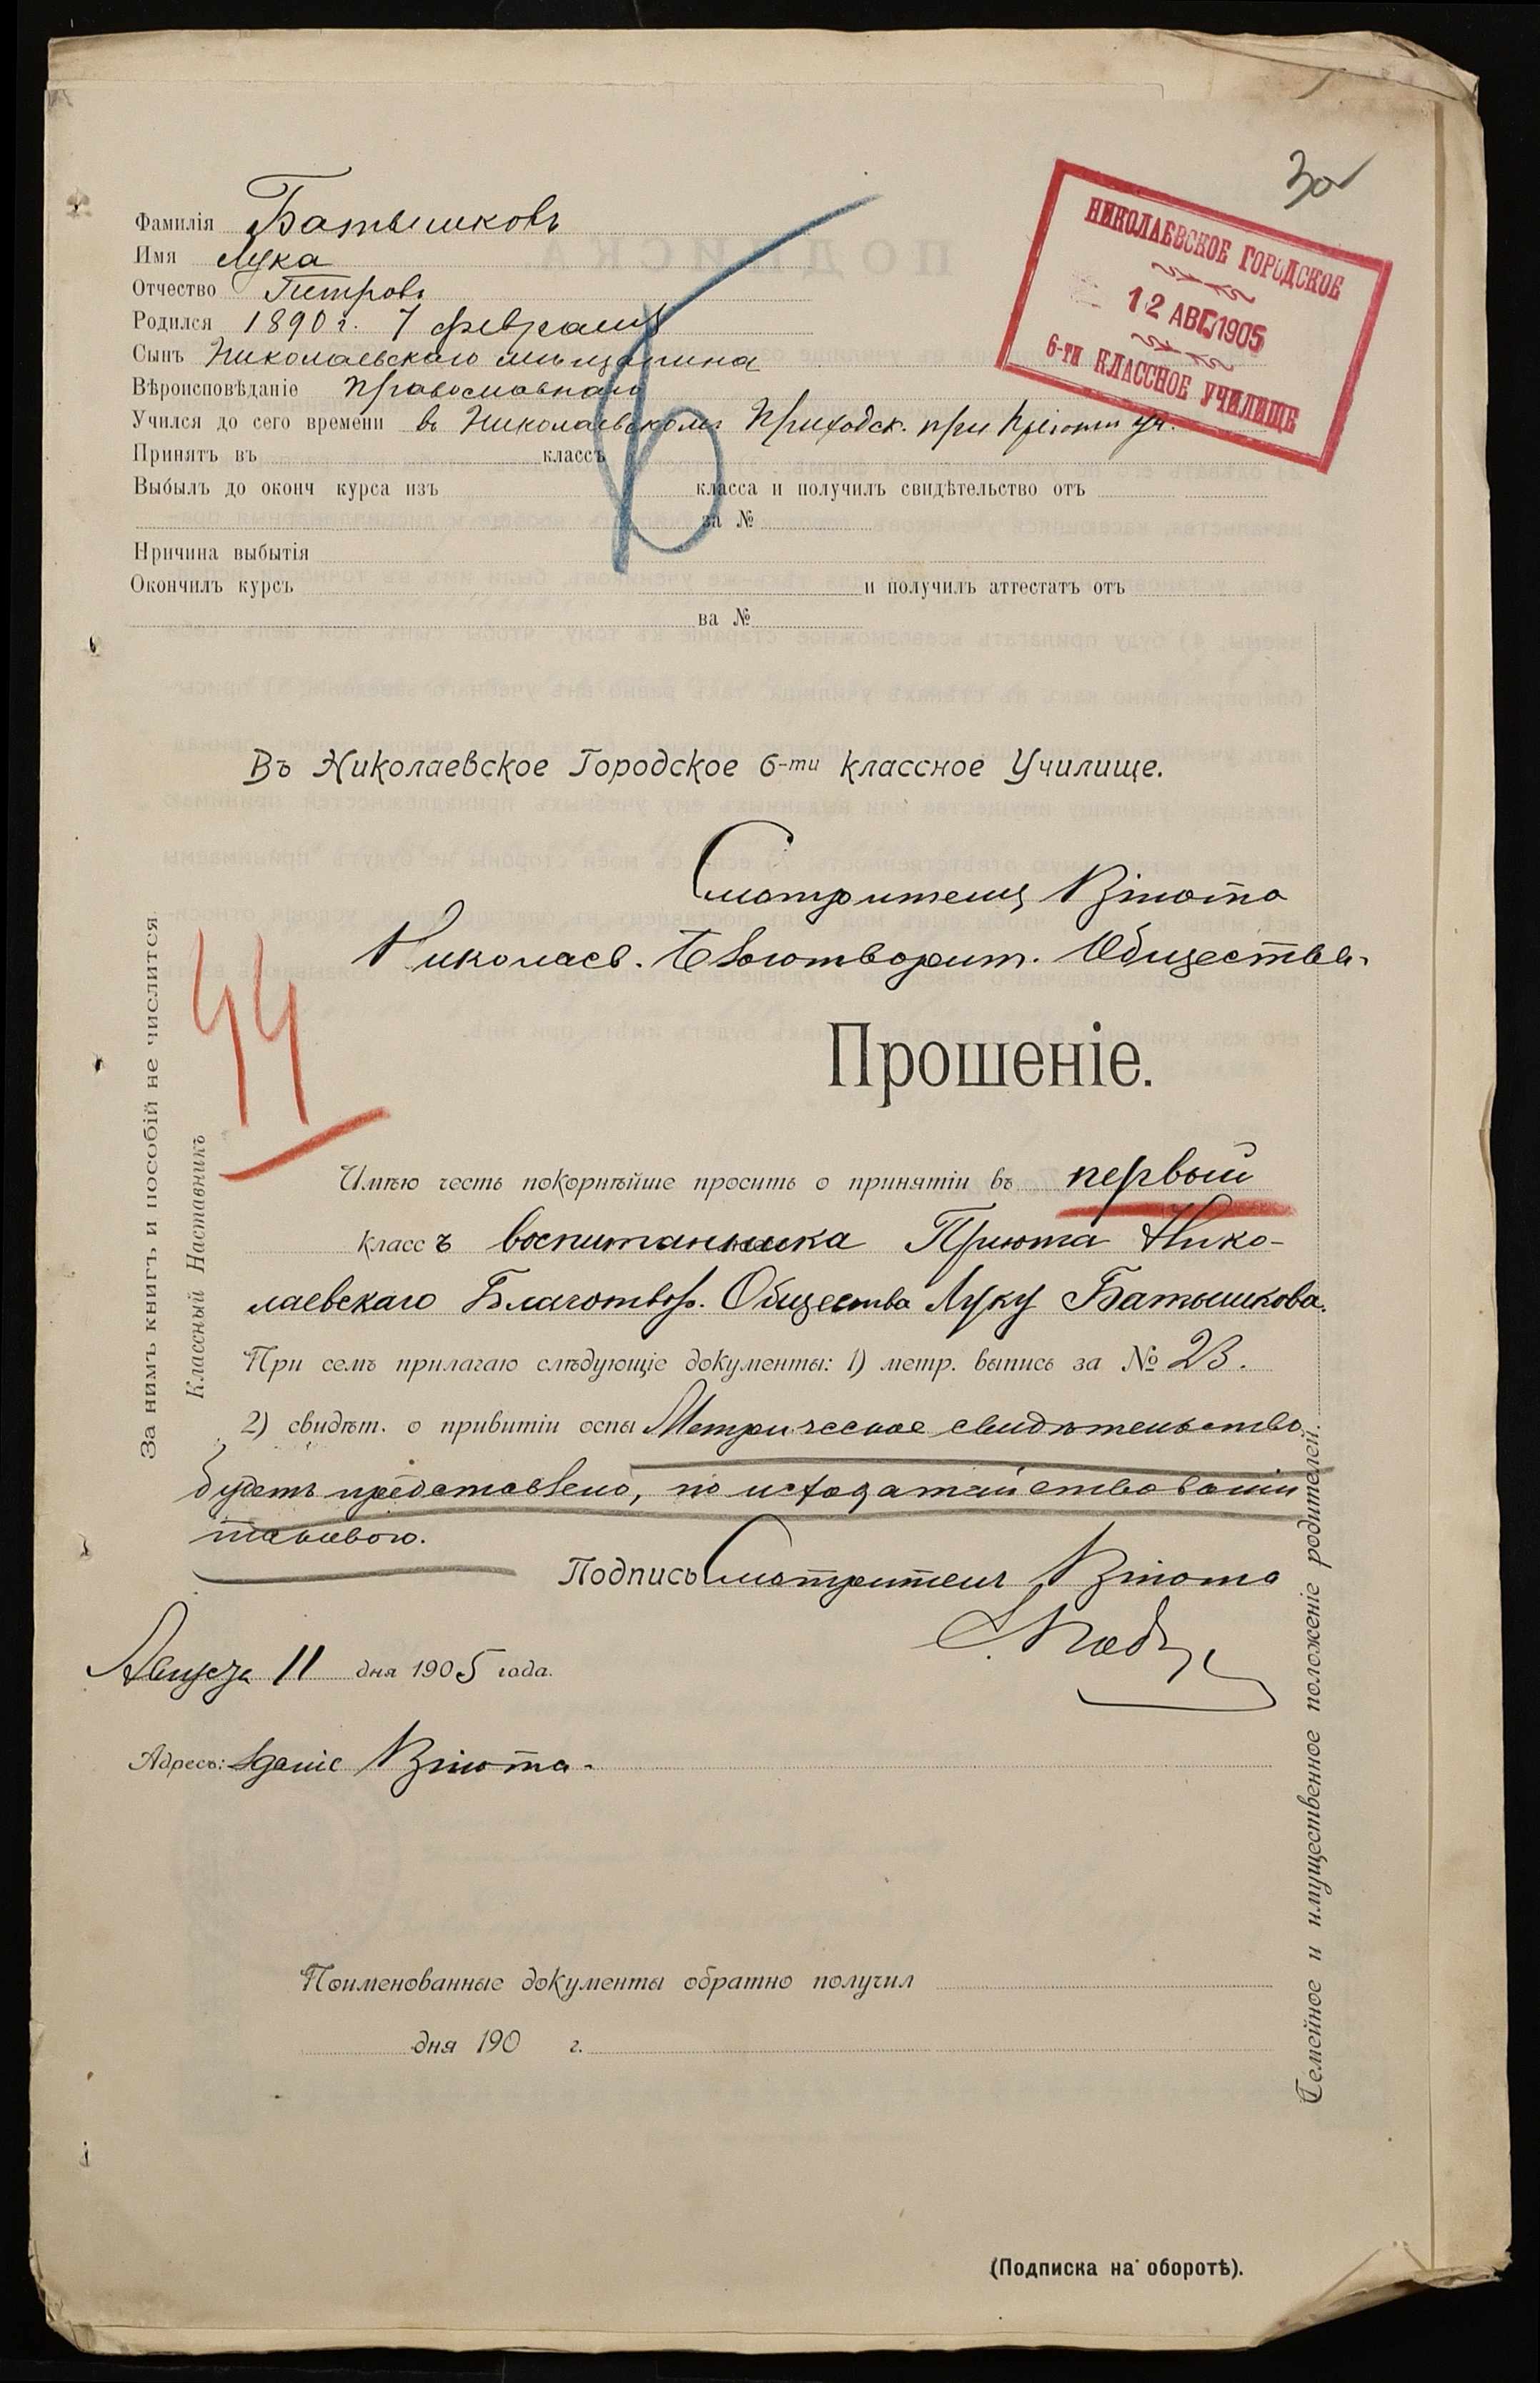 30
НИКОЛАЕВСКОЕ ГОРОДСКОЕ
12 АВГ 1905
6-ти КЛАССНОЕ УЧИЛИЩЕ
Фамилія Батышковъ
Имя Лука
Отчество Петровъ
Родился 1890 г. 7 февраля
Сынъ Николаевскаго мѣщанина
Вѣроисповѣданіе православнаго
Учился до сего времени въ Николаевскомъ Приходск. при Пріютѣ уч.
Принятъ въ классъ
Выбылъ до оконч курса изъ класса и получилъ свидѣтельство отъ
за №
Причина выбытія
Окончилъ курсъ и получилъ аттестатъ отъ
ва №
Въ Николаевское Городское 6-ти классное Училище.
Смотрителя Пріюта
Николаев. Благотворит. Общества.
Прошеніе.
44
Имѣю честь покорнѣйше просить о принятіи въ первый
классъ воспитанника Пріюта Нико-
лаевскаго Благотвор. Общества Луку Батышкова.
При семъ прилагаю слѣдующіе документы: 1) метр. выпись за № 23.
2) свидѣт. о привитіи оспы Метрическое свидѣтельство
будетъ представлено, по исходатайствованіи
таковаго.
Подпись Смотритель Пріюта
Августа 11 дня 1905 года.
Адресъ: Зданіе Пріюта.
Поименованные документы обратно получил
дня 190 г.
(Подписка на оборотѣ).
За нимъ книгъ и пособій не числится
Классный Наставникъ
Семейное и имущественное положеніе родителей.